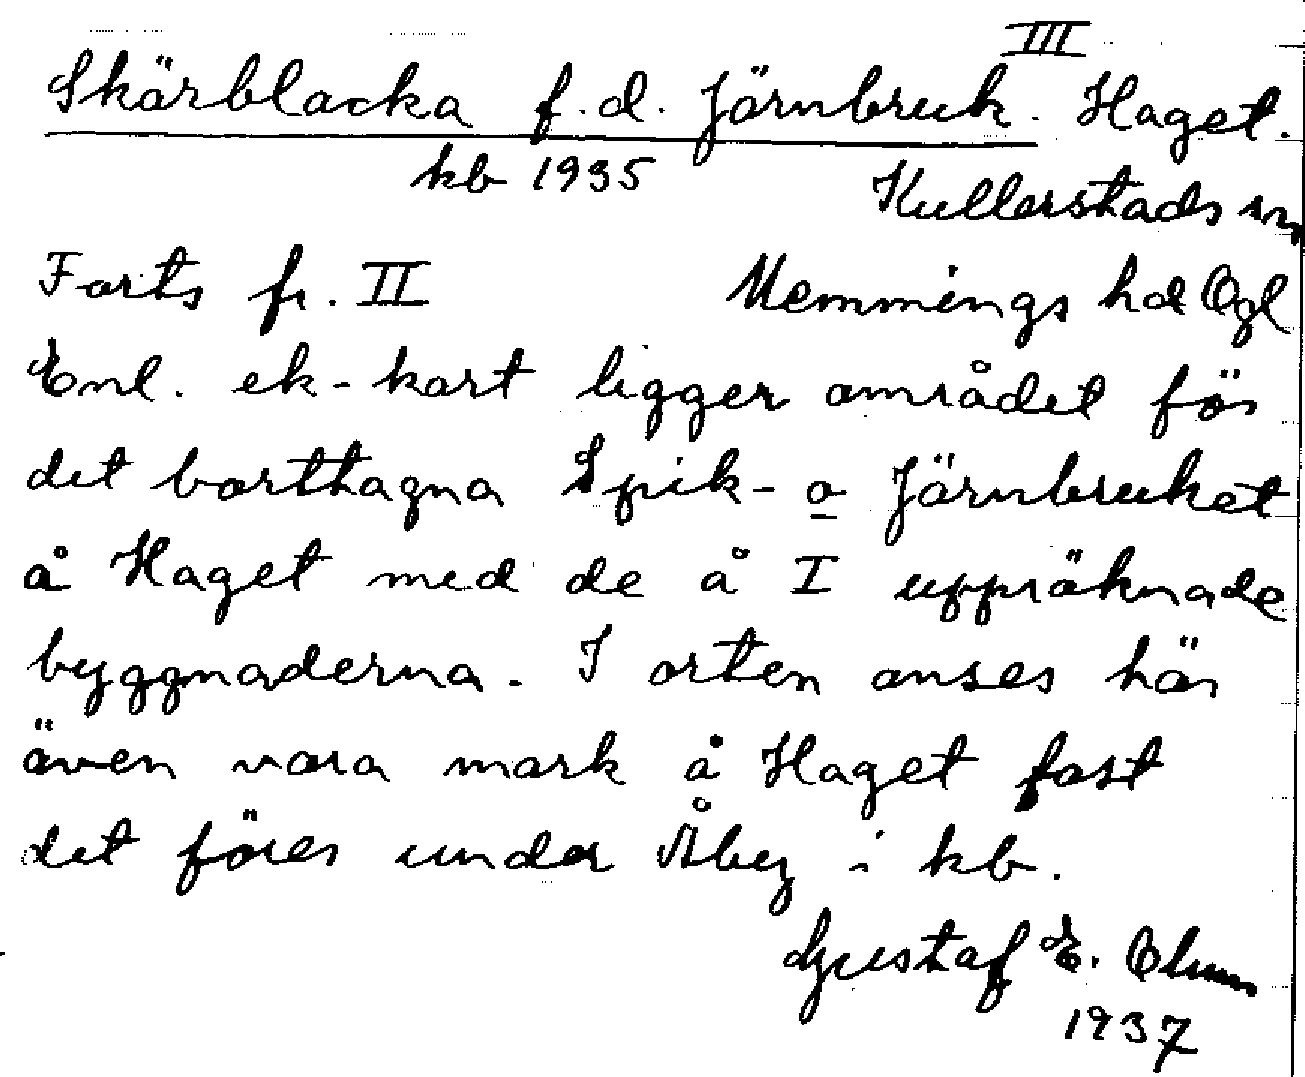 III
Skärblacka f.d. Järnbruk. Haget.
kb 1935
Kullerstads sn
Forts fr. II Memmings hd Ögl
Enl. ek-kart ligger området för
det borttagna Spik- o Järnbruket
å Haget med de å I uppräknade
byggnaderna. I orten anses här
även vara mark å Haget fast
det föres under Åby i kb.
Gustaf E.
1937